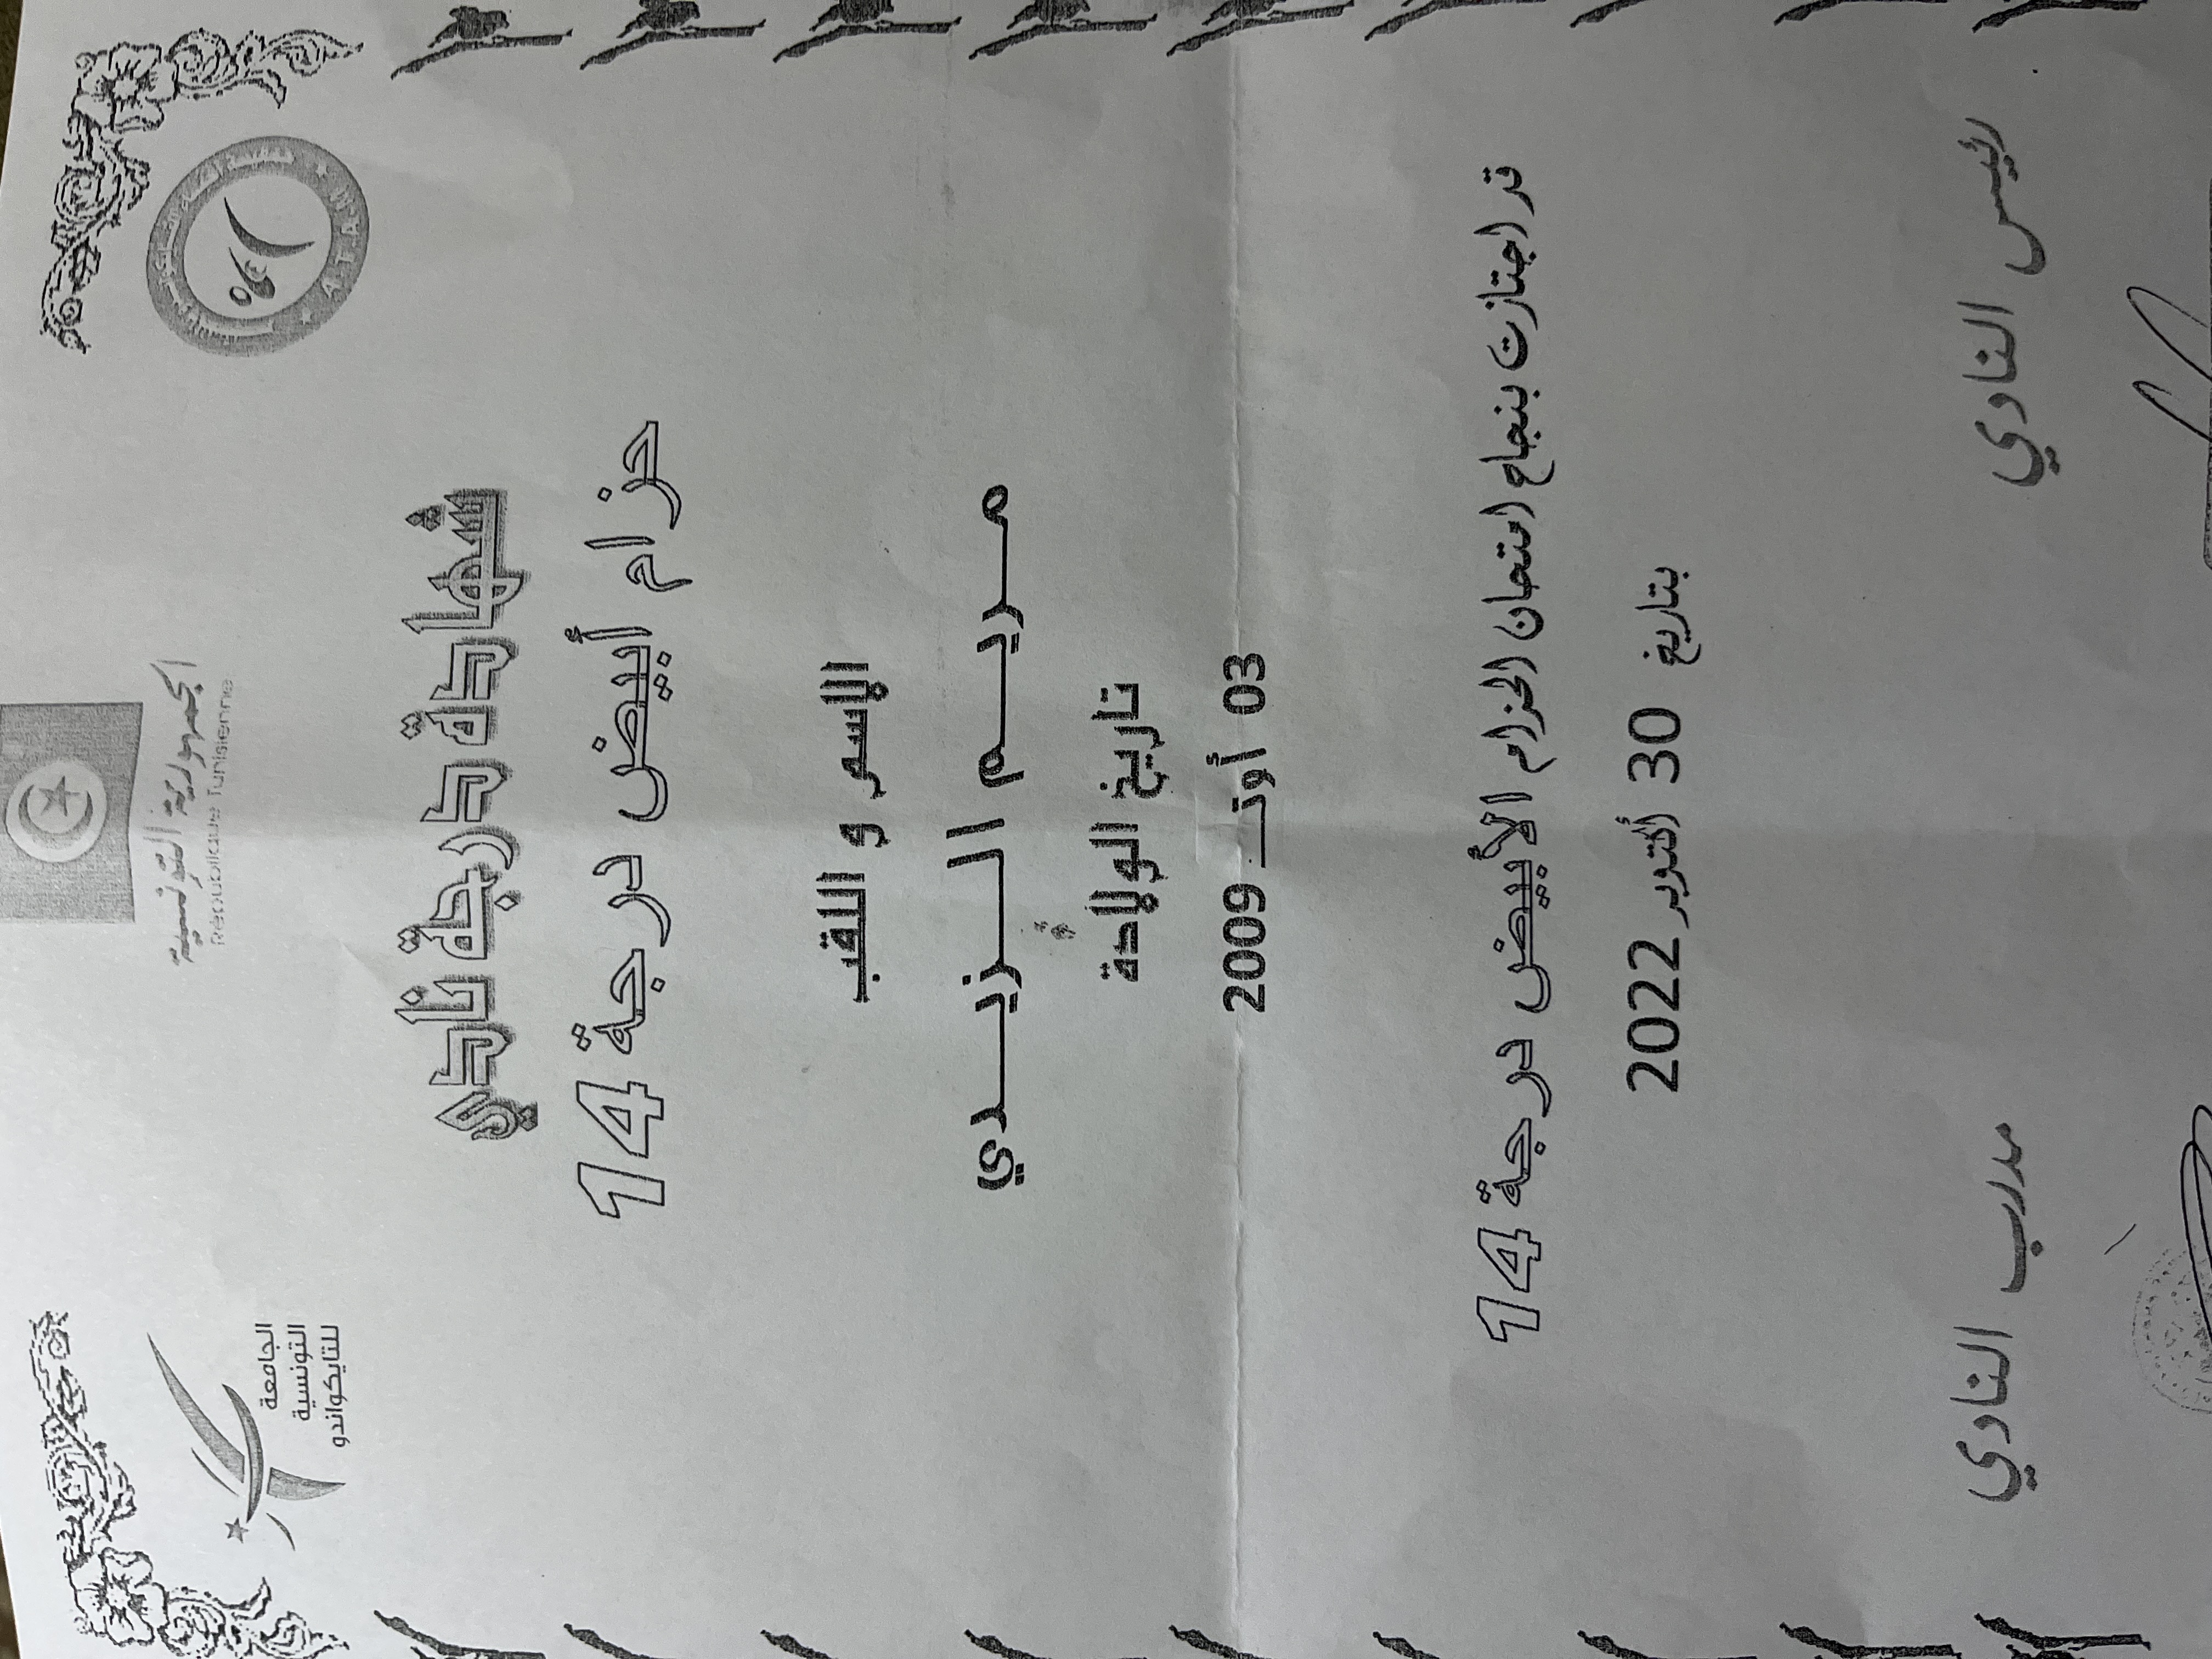 الجمهورية التونسية
République Tunisienne
A T A M
الجامعة
التونسية
للتايكواندو
شهادة درجة نادي
حزام أبيض درجة 14
الإسم و اللقب
مريم الزيدي
تاريخ الولادة
03 أوت 2009
قد اجتازت بنجاح امتحان الحزام الأبيض درجة 14
بتاريخ 30 أكتوبر 2022
رئيس النادي
مدرب النادي